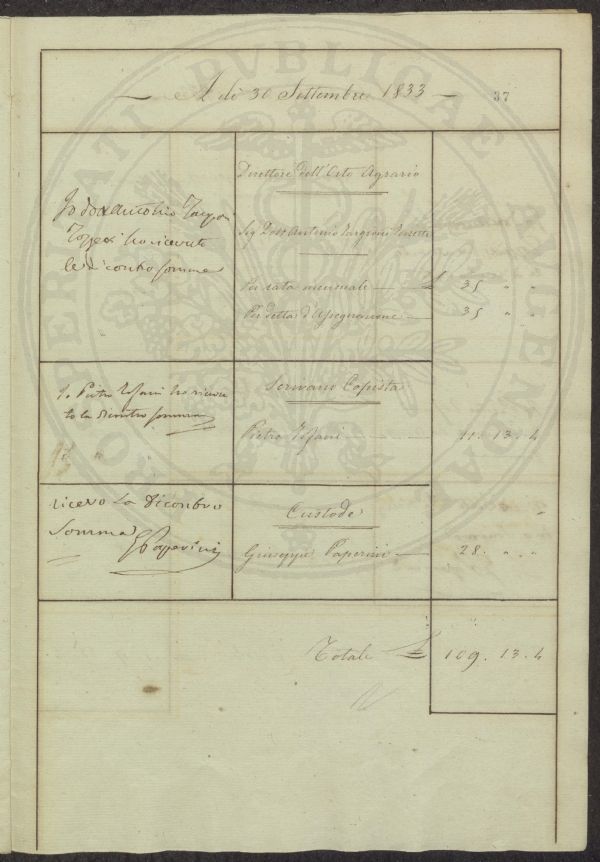 A dì 30 Settembre 1833
37
Direttore dell'Orto Agrario
Io dott Antonio Targioni
Tozzetti ho ricevuto
le di contro somme
Sig Dott Antonio Targioni Tozzetti
Per rata mensuale — £ 35 " "
Per detta d'Assegnazione — 35 " "
Scrivano Copista
Io Pietro Tofani ho ricevu
to la dicontro somma
Pietro Tofani — 11. 13. 4
Custode
ricevo La Diconbro
Somma
G Paperini
Giuseppe Paperini — 28. " "
Totale £ 109. 13. 4
OPERIBVS PVBLICAE